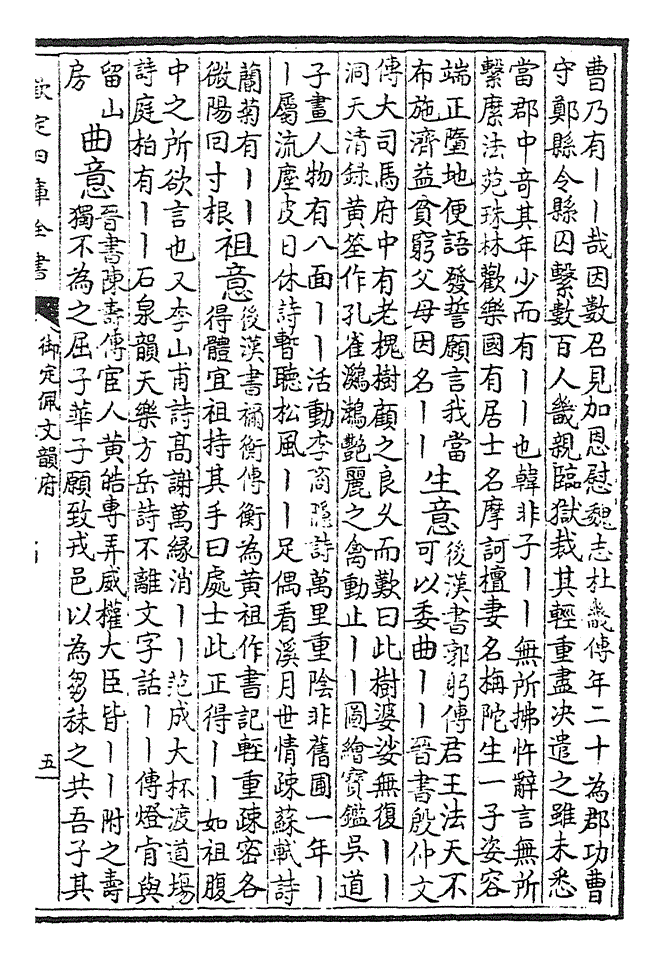 曹乃有丨丨哉因數召見加恩慰魏志杜畿傳年二十為郡功曹
守鄭縣令縣囚繫數百人畿親臨獄裁其輕重盡决遣之雖未悉
當郡中竒其年少而有丨丨也韓非子丨丨無所拂忤辭言無所
繫縻法苑珠林歡樂國有居士名摩訶檀妻名栴陀生一子姿容
端正墮地便語發誓願言我當
布施濟益貧窮父母因名丨丨
生意
後漢書郭躬傳君王法天不
可以委曲丨丨晉書殷仲文
傳大司馬府中有老槐樹顧之良久而歎曰此樹婆娑無復丨丨
洞天清録黄筌作孔雀鸂鶒艶麗之禽動止丨丨圖繪寶鑑吳道
子畫人物有八面丨丨活動李商隱詩萬里重陰非舊圃一年丨
丨屬流塵皮日休詩暫聽松風丨丨足偶看溪月世情疎蘇軾詩
蘭菊有丨丨
微陽回寸根
祖意
後漢書禰衡傳衡為黄祖作書記輕重疎密各
得體宜祖持其手曰處士此正得丨丨如祖腹
中之所欲言也又李山甫詩高謝萬緣消丨丨范成大杯渡道塲
詩庭柏有丨丨石泉韻天樂方岳詩不離文字話丨丨傳燈肯與
留山
房
曲意
晉書陳壽傳宦人黄皓專弄威權大臣皆丨丨附之壽
獨不為之屈子華子願致戎邑以為芻秣之共吾子其
欽定四庫全書
御定佩文韻府
五